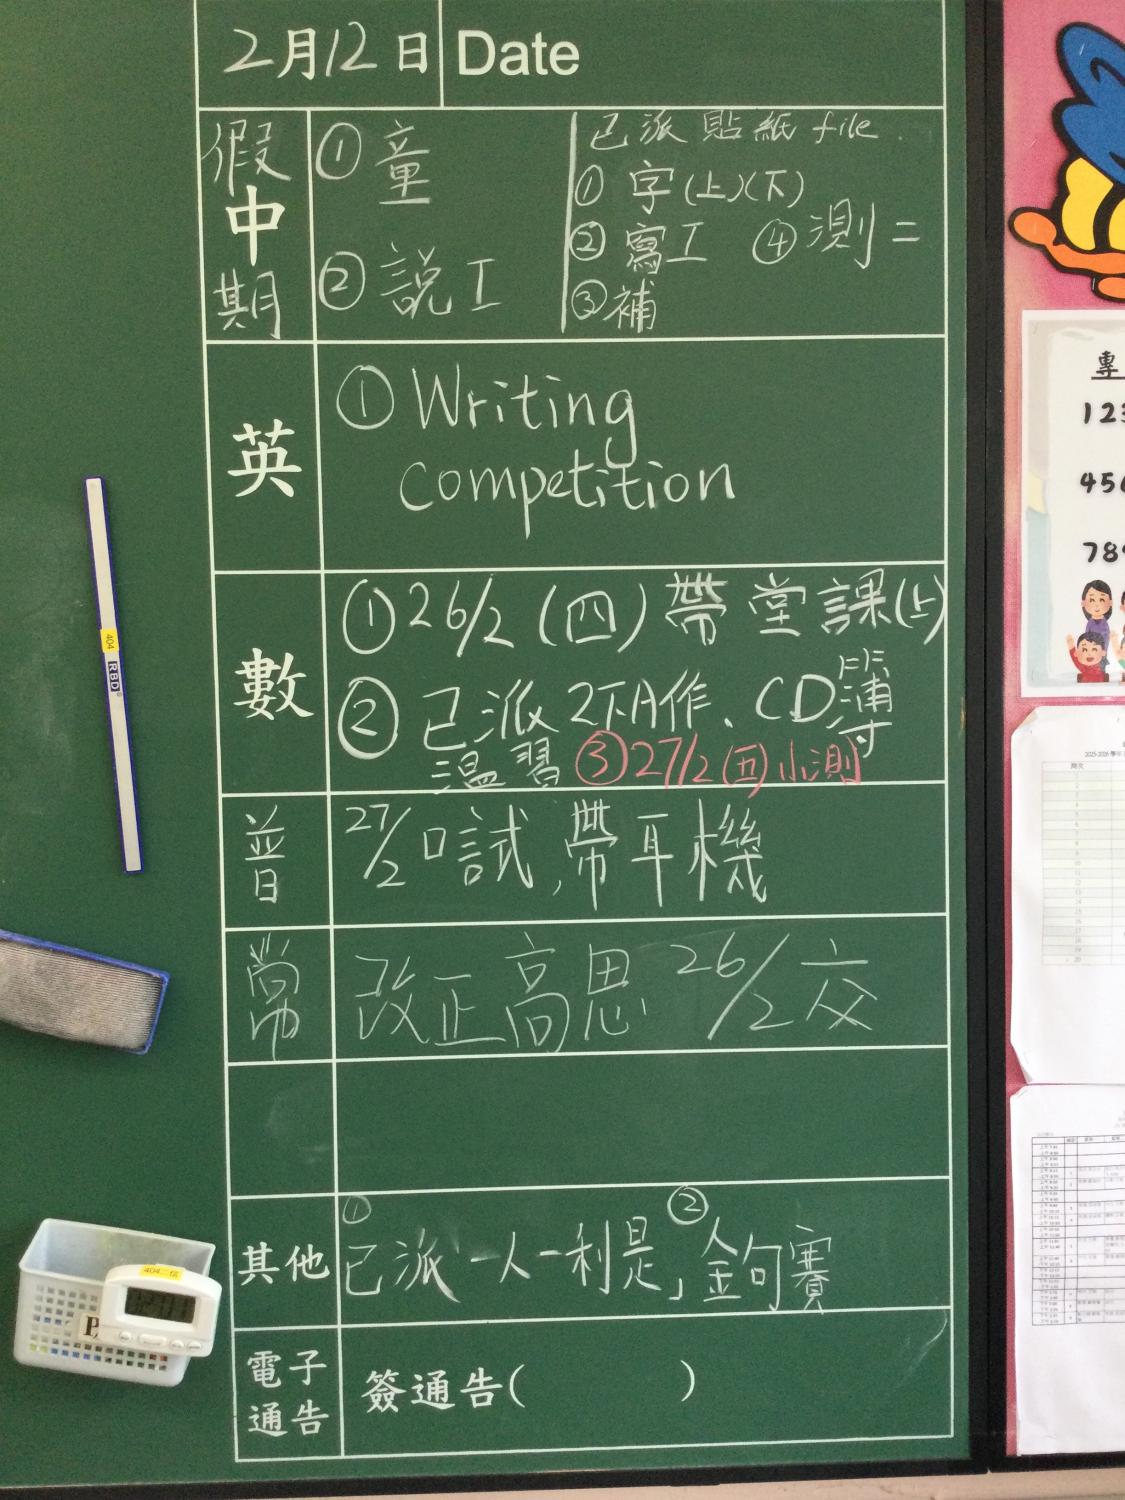 2月12日 Date
假
中
期
① 童
② 説工
已派貼紙 file.
① 字(上)(下)
② 寫工 ④ 測二
③ 補
英
① Writing
competition
數
① 26/2 (四) 帶堂課(上)
② 已派2下A作、CD簿
溫習 ③ 27/2 (五) 小測
普
27/2 口試,帶耳機
常
改正高思 26/2 交
其他
① 已派“一人一利是” ② 金句賽
電子
通告
簽通告( )
404
RBD
404二信
P.
專
123
456
789